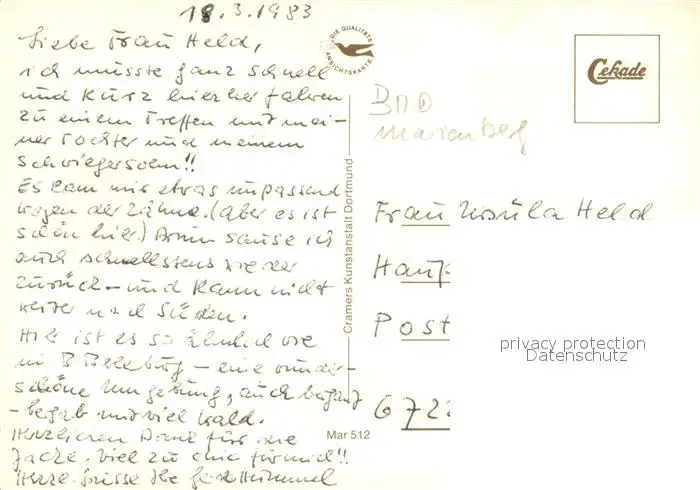 18.3.1983
Liebe Frau Held,
ich musste ganz schnell
und kurz hierher fahren
zu einem Treffen mit mei-
ner Tochter und meinem
Schwiegersohn!!
Es kam mir etwas unpassend
wegen der Zähne. (Aber es ist
schön hier.) Drum sause ich
auch schnellstens wieder
zurück – und kann nicht
weiter nach Süden.
Hier ist es so ähnlich wie
in B Berleburg – eine wunder-
schöne Umgebung, auch bergauf
– bergab und viel Wald.
Herzlichen Dank für die
Jacke. Viel zu chic für mich!!
Herzl. Grüsse Ihre
DIE QUALITÄTS
ANSICHTSKARTE
Cramers Kunstanstalt Dortmund
Mar 512
Cekade
BND
Marienberg
Frau Ursula Held
Haup
Post
672
privacy protection
Datenschutz